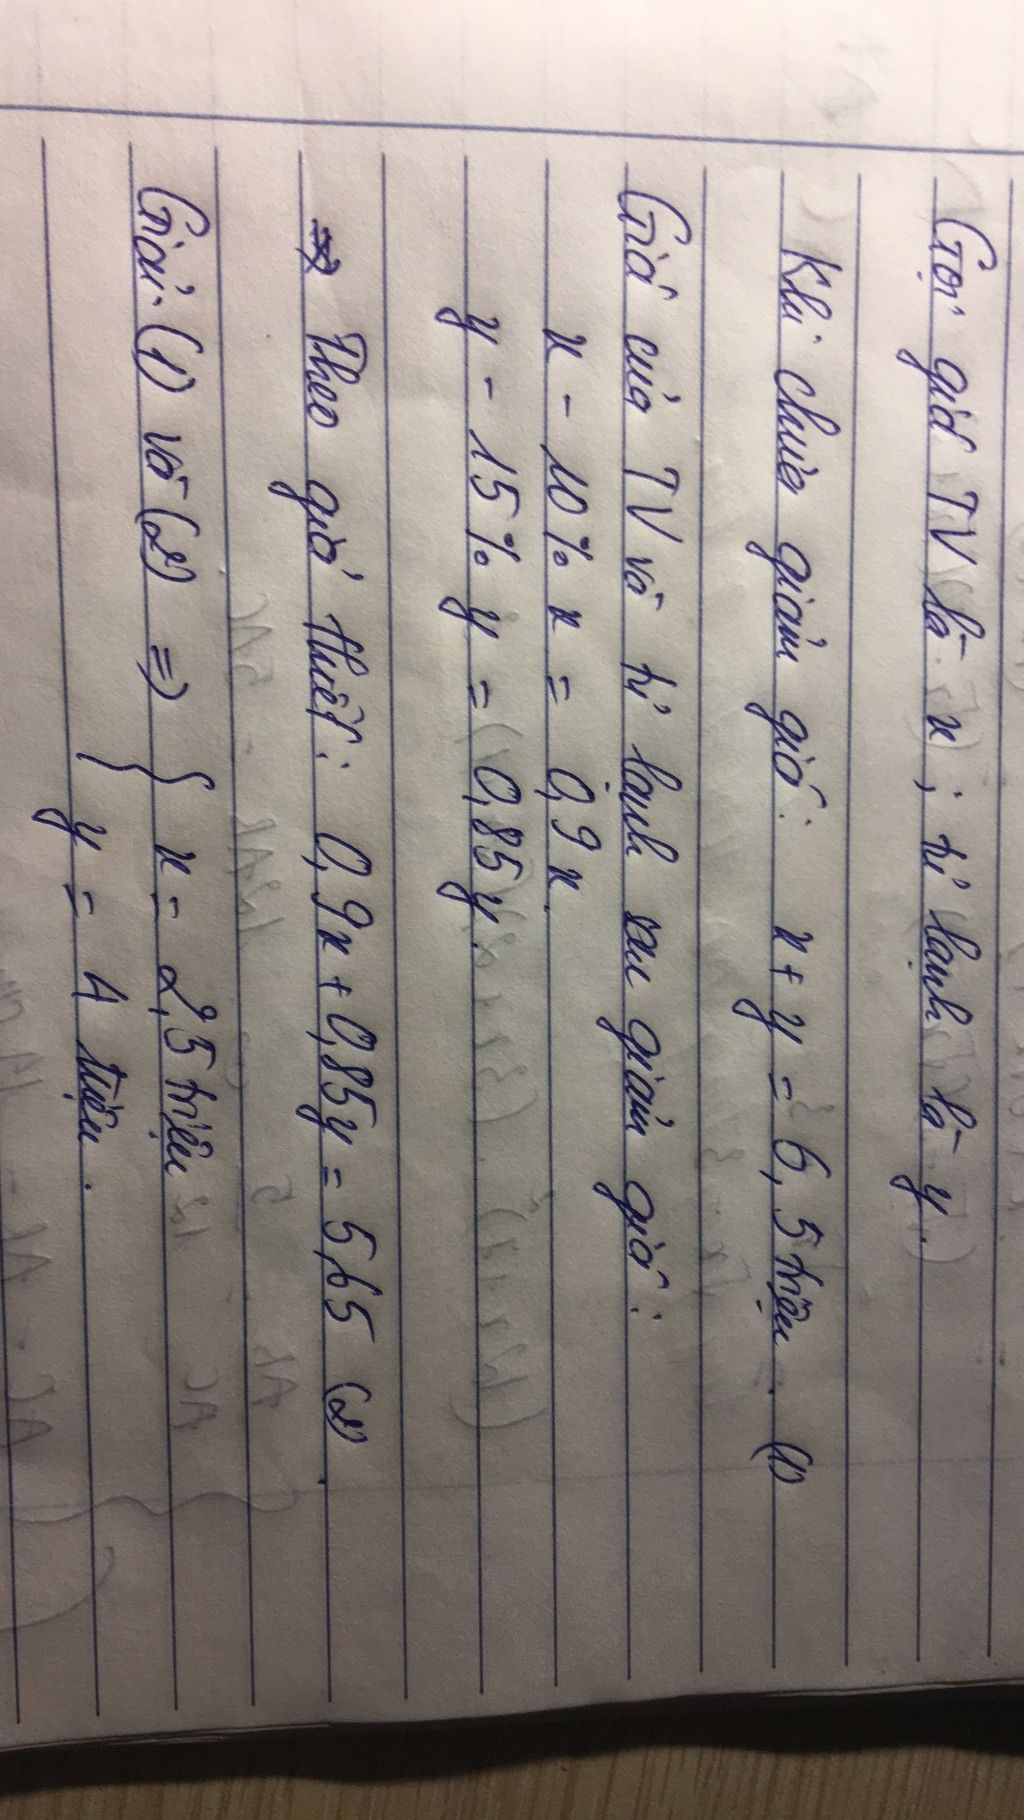 Gọi giá TV là x ; tủ lạnh là y.
Khi chưa giảm giá: x + y = 6,5 triệu. (1)
Giá của TV và tủ lạnh sau giảm giá:
x - 10% x = 0,9 x.
y - 15% y = 0,85y.
Theo giả thiết: 0,9x + 0,85y = 5,65 (2).
Giải (1) và (2) => { x = 2,5 triệu
y = 4 triệu.